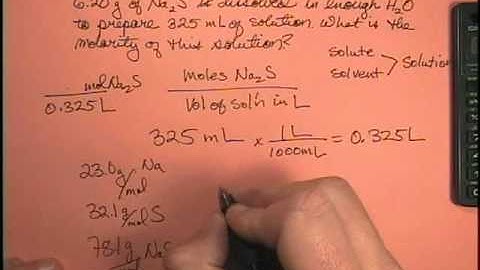 6.20 g of Na₂S is dissolved in enough H₂O
to prepare 325 mL of solution. What is the
molarity of this solution?
solute
solvent > solution
mol Na₂S
0.325L
moles Na₂S
Vol of sol'n in L
325 mL x 1L/1000mL = 0.325L
23.0 g/mol Na
32.1 g/mol S
78.1 g Na₂S